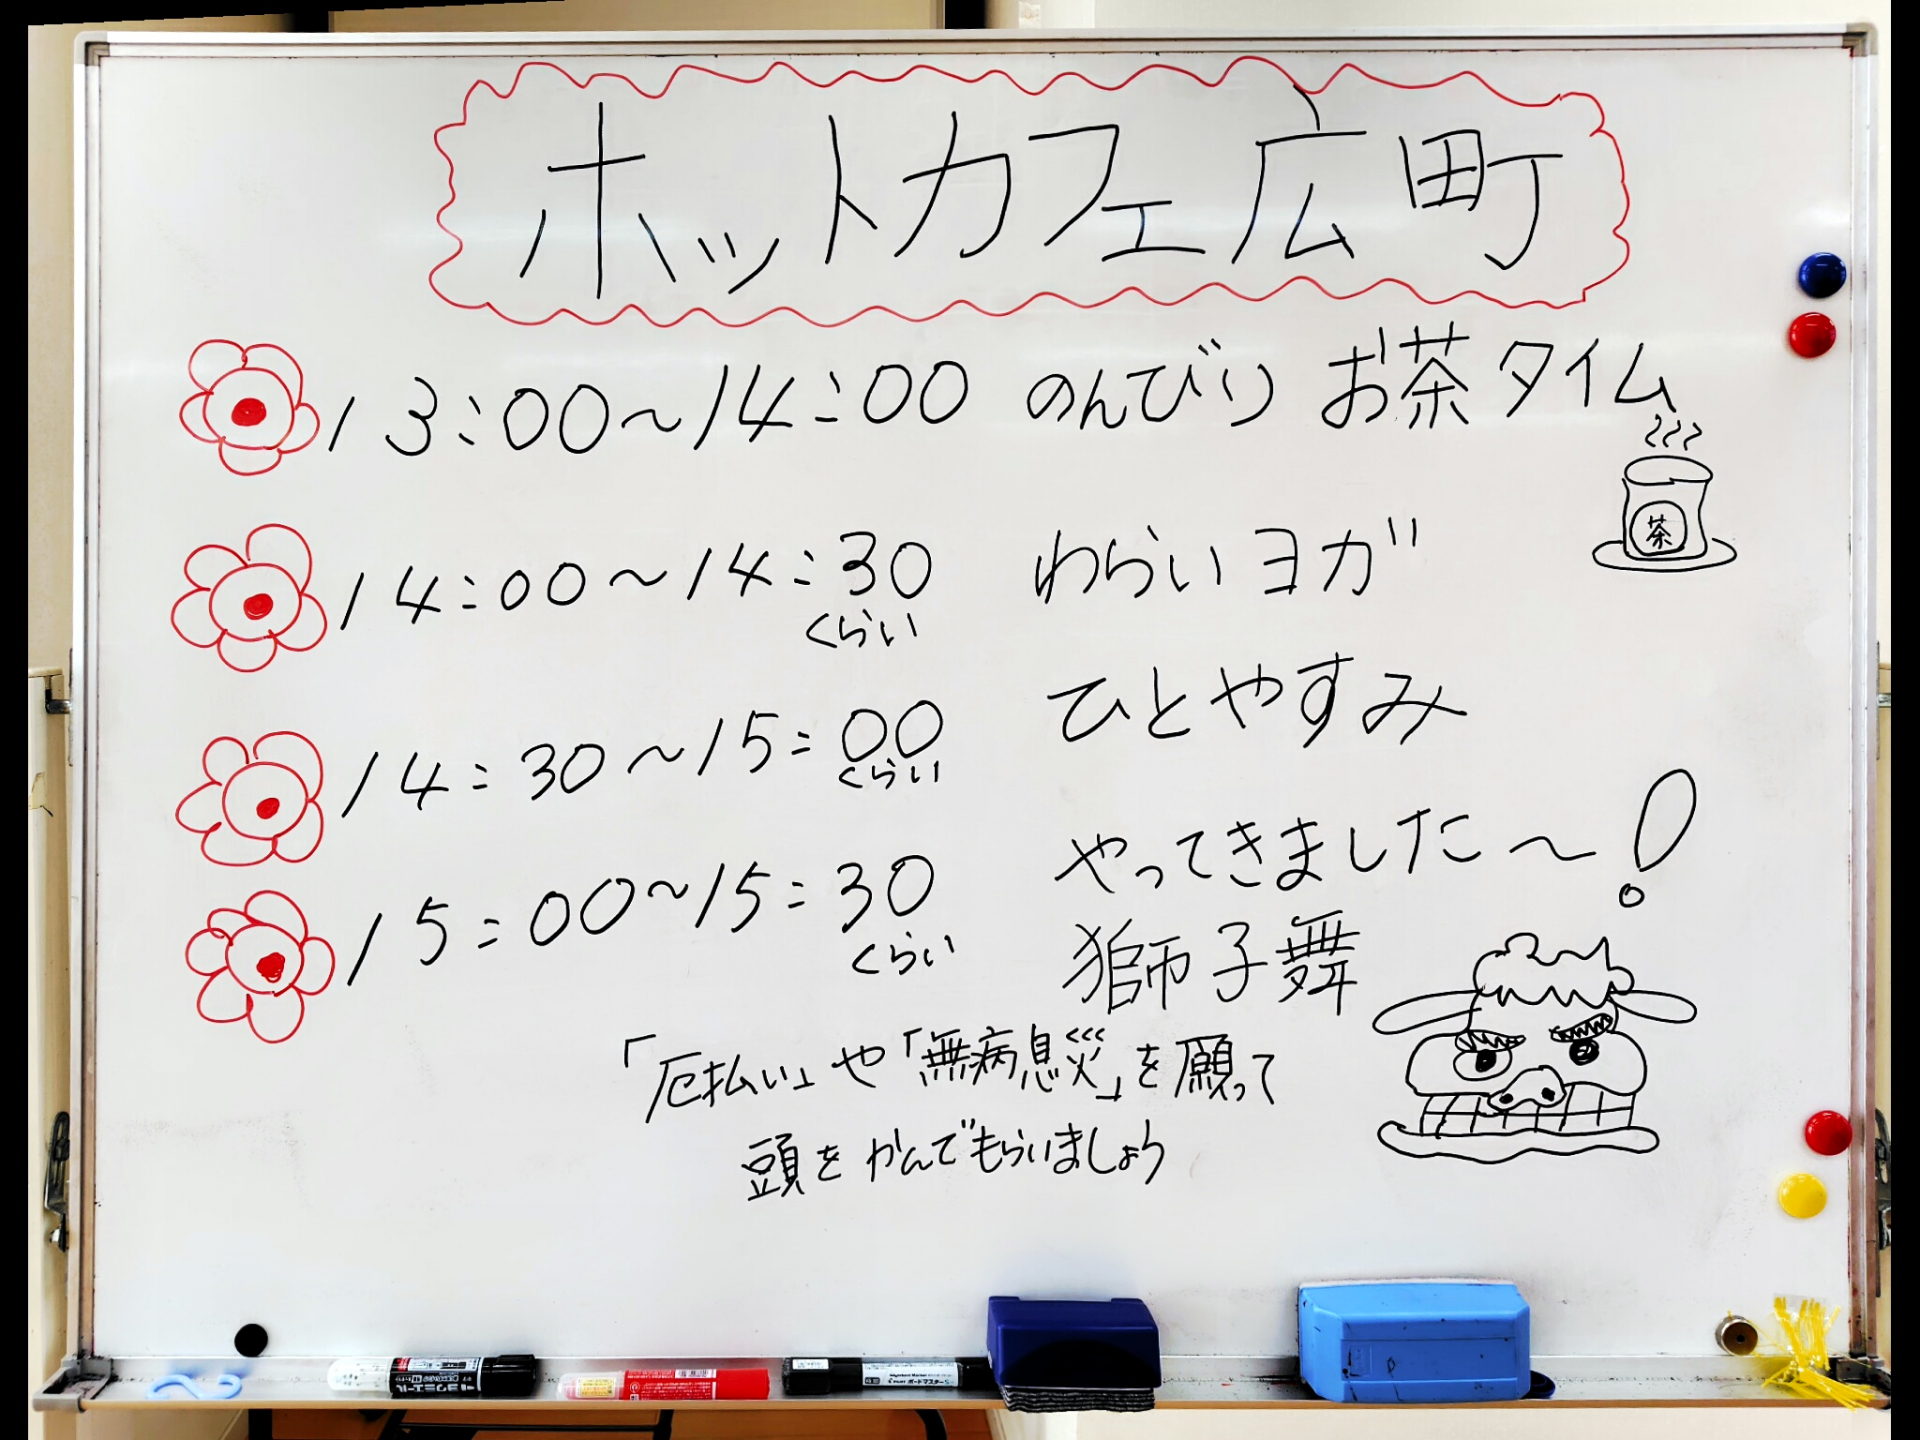 ホットカフェ広町
13:00〜14:00 のんびり お茶タイム
茶
14:00〜14:30 わらいヨガ
くらい
14:30〜15:00 ひとやすみ
くらい
15:00〜15:30 やってきました〜!
くらい
獅子舞
「厄払い」や「無病息災」を願って
頭をかんでもらいましょう